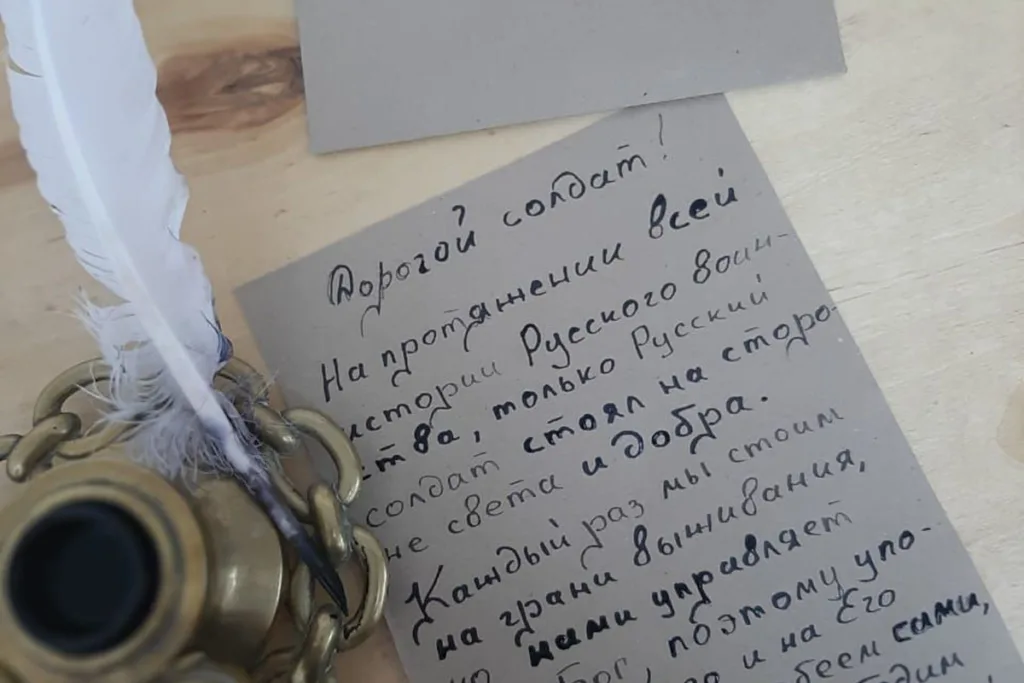 Дорогой солдат!
На протяжении всей
истории Русского воин-
ства, только Русский
солдат стоял на сторо-
не света и добра.
Каждый раз мы стоим
на грани выживания,
нами управляет
но Бог, поэтому упо-
и на Его
сами,